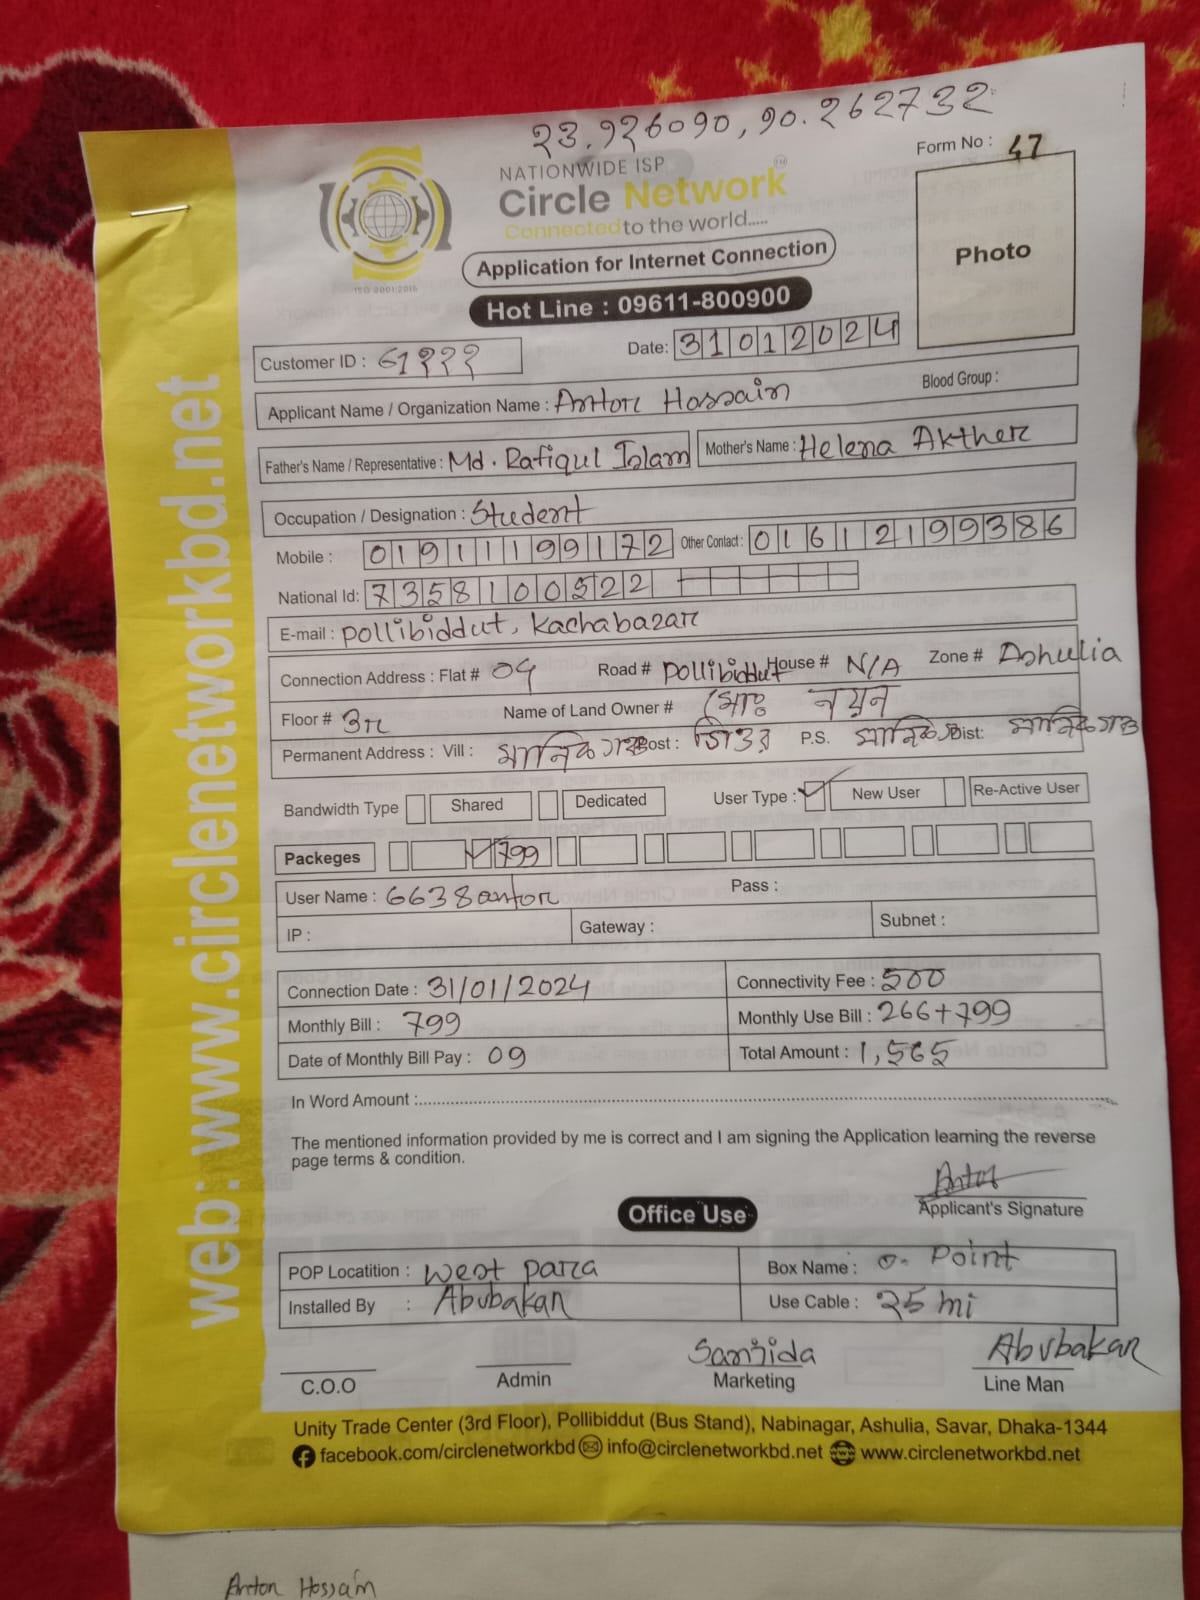 23.926090, 90.262732
Form No : 47
NATIONWIDE ISP
Circle Network
Connected to the world.....
Application for Internet Connection
Hot Line : 09611-800900
ISO 9001:2015
Photo
Date: 31012024
Customer ID :
Applicant Name / Organization Name : Anton Hossain Blood Group :
Father's Name / Representative : Md. Rafiqul Islam Mother's Name : Helena Akther
Occupation / Designation : Student
Mobile : 01911199172 Other Contact : 01612199386
National Id: 7358100522
E-mail : pollibiddut, Kachabazar
Connection Address : Flat # 04 Road # pollibiddut House # N/A Zone # Ashulia
Floor # 3r Name of Land Owner # মোঃ নয়ন
Permanent Address : Vill : মানিকগঞ্জ Post : P.S. মানিকগঞ্জ Dist: মানিকগঞ্জ
Bandwidth Type Shared Dedicated User Type : New User Re-Active User
Packeges 799
User Name : 6638anton Pass :
IP : Gateway : Subnet :
Connection Date : 31/01/2024 Connectivity Fee : 500
Monthly Bill : 799 Monthly Use Bill : 266+799
Date of Monthly Bill Pay : 09 Total Amount : 1,565
In Word Amount :
The mentioned information provided by me is correct and I am signing the Application learning the reverse
page terms & condition.
Anton
Applicant's Signature
Office Use
POP Locatition : West para Box Name : Point
Installed By : Abubakar Use Cable : 25 mi
Sanjida Abubakar
C.O.O Admin Marketing Line Man
Unity Trade Center (3rd Floor), Pollibiddut (Bus Stand), Nabinagar, Ashulia, Savar, Dhaka-1344
facebook.com/circlenetworkbd info@circlenetworkbd.net www.circlenetworkbd.net
web: www.circlenetworkbd.net
Anton Hossain